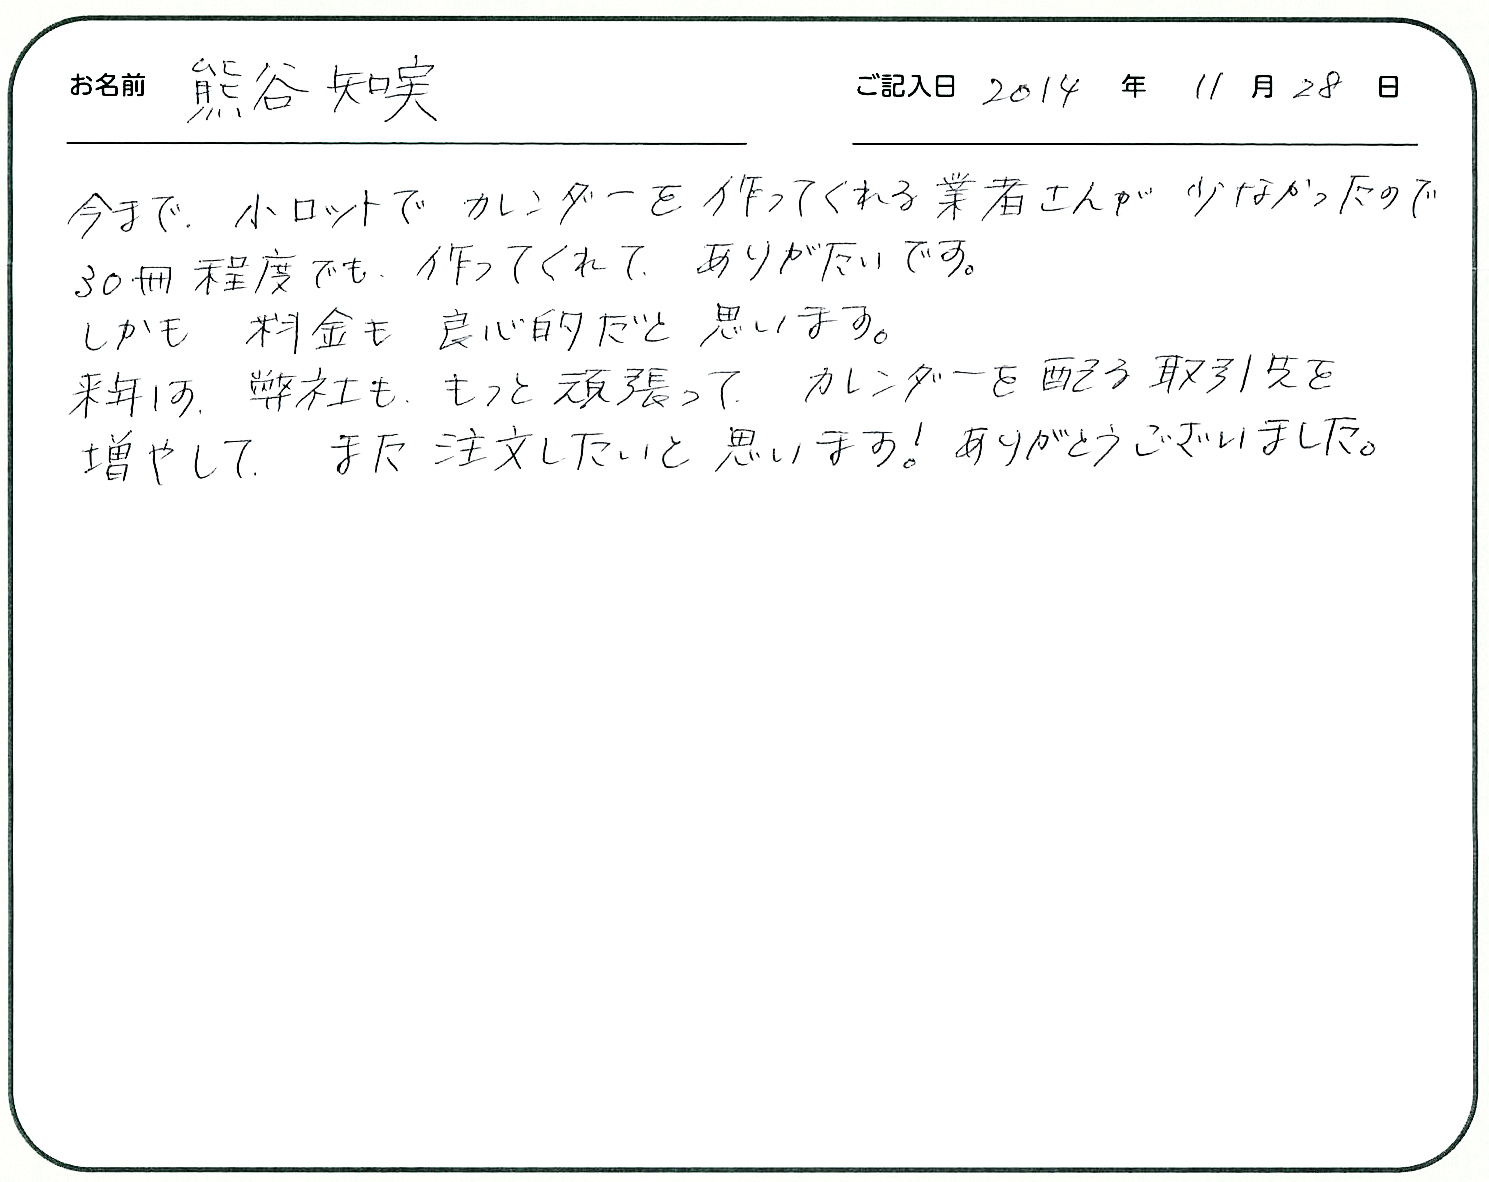 お名前 熊谷 知実 ご記入日 2014 年 11 月 28 日
今まで、小ロットで カレンダーを 作ってくれる業者さんが 少なかったので
30冊 程度でも、作ってくれて、ありがたいです。
しかも 料金も 良心的だと 思います。
来年は、弊社も、もっと 頑張って、カレンダーを 配る 取引先を
増やして、また 注文したいと 思います! ありがとうございました。